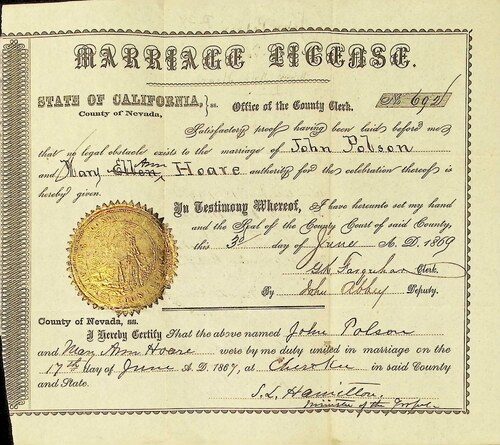 MARRIAGE LICENSE.
STATE OF CALIFORNIA, }ss. Office of the County Clerk. No 692
County of Nevada,
Satisfactory proof having been laid before me
that no legal obstacle exists to the marriage of John Polson
Ann
and Mary Ellen Hoare authority for the celebration thereof is
hereby given.
In Testimony Whereof, I have hereunto set my hand
and the Seal of the County Court of said County,
this 3d day of June A. D. 1869
Farquhar Clerk.
By John Abbey Deputy.
County of Nevada, ss.
I Hereby Certify That the above named John Polson
and Mary Ann Hoare were by me duly united in marriage on the
17th day of June A. D. 1867, at Cherokee in said County
and State.
S. L. Hamilton,
Minister of the Gospel